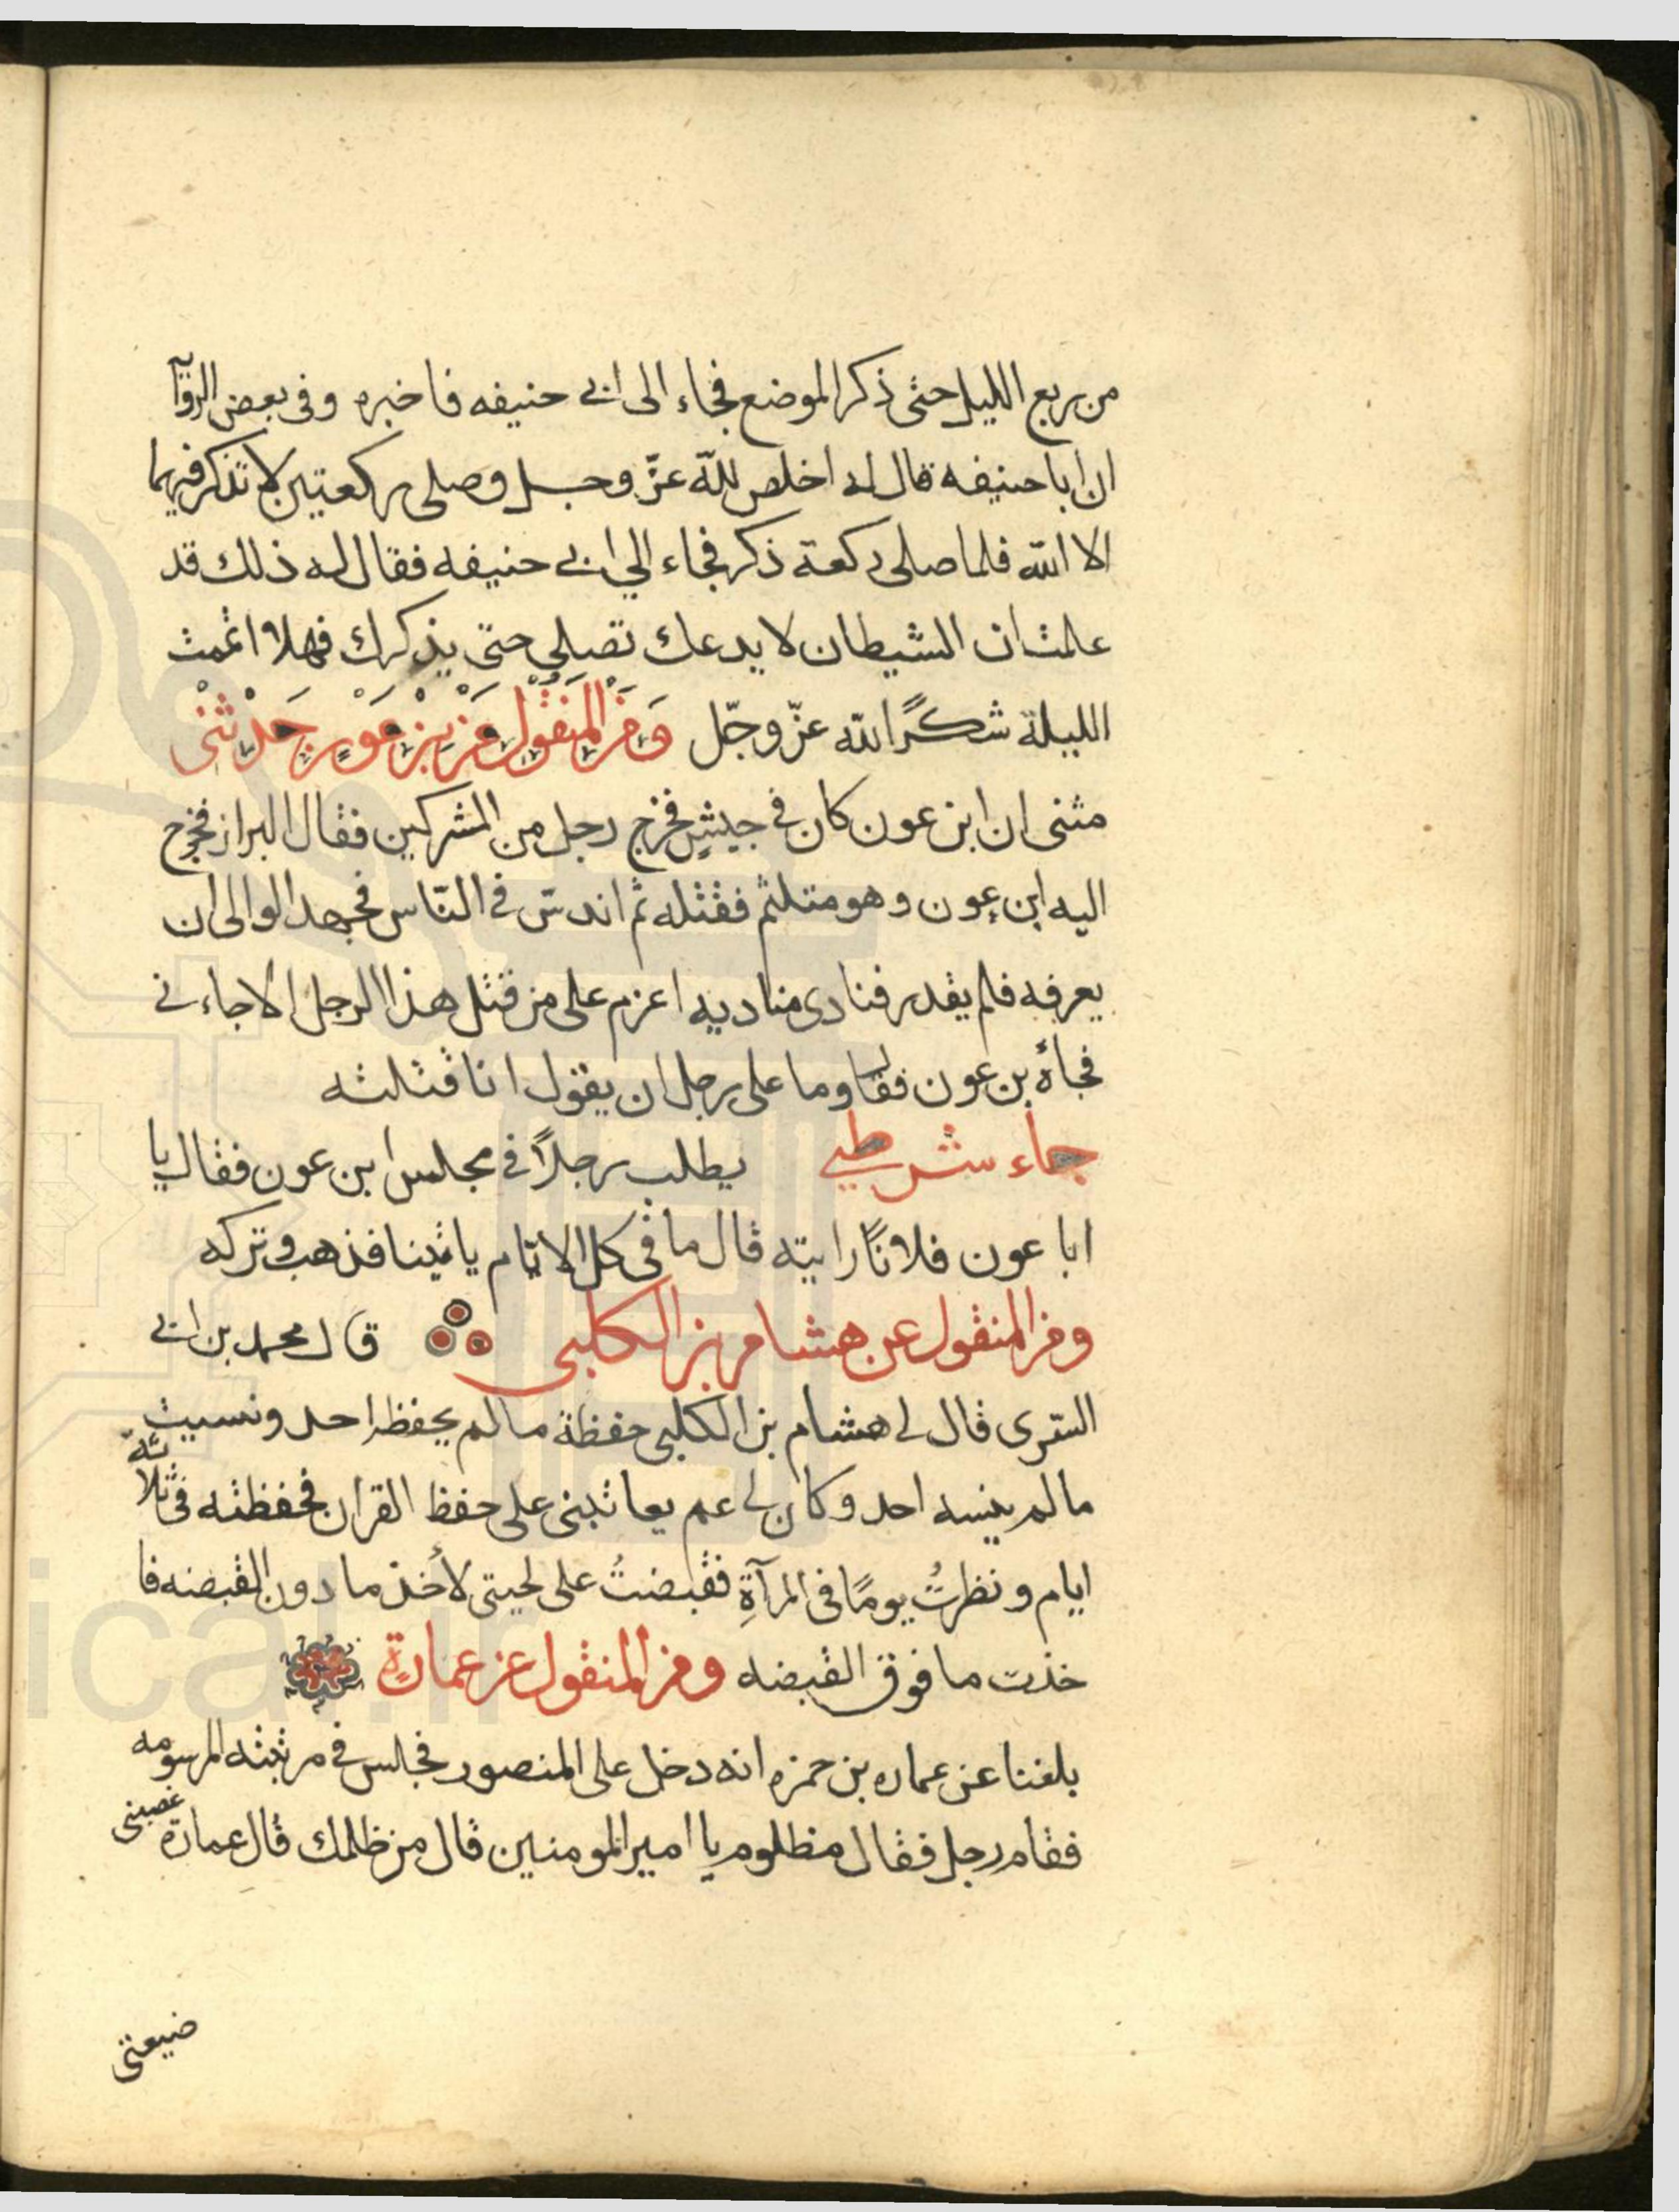 من ربع الليل حتى ذكر الموضع فجاء الى ابى حنيفه فاخبره وفى بعض الروآ
ان ابا حنيفه قال له اخلص للّه عزّ وجل وصلى ركعتين لا تذكر فيهما
الا اللّه فلما صلى ركعة ذكر فجاء الى ابى حنيفه فقال له ذلك قد
علمت ان الشيطان لا يدعك تصلى حتى يذكرك فهلا اتممت
الليلة شكرًا للّه عزّ وجّل وَمن المنقول عن بن عون حدثنى
مثنى ان ابن عون كان فى جيشٍ فخرج رجل من المشركين فقال البراز فخرج
اليه ابن عون وهو متلثم فقتله ثم اندسّ فى النّاس فجهد الوالى ان
يعرفه فلم يقدر فنادى مناديه اعزم على من قتل هذا الرجل الا جاءنى
فجاه بن عون فقال وما على رجل ان يقول انا قتلته
جاء شرطي يطلب رجلاً فى مجلس ابن عون فقال يا
ابا عون فلانًا رايته قال ما فى كل الايام ياتينا فذهب وتركه
ومن المنقول عن هشام بن الكلبى قال محمد بن ابى
السّرى قال لى هشام بن الكلبى حفظة ما لم يحفظه احد ونسيت
ما لم ينسه احد وكان لى عم يعاتبنى على حفظ القران فحفظته فى ثلاثة
ايام ونظرتُ يومًا فى المرآةِ فقبضتُ على لحيتى لأخذ ما دون القبضه فا
خذت ما فوق القبضه ومن المنقول عن عمارةٍ
بلغنا عن عماره بن حمزه انه دخل على المنصور فجلس فى مرتبته المرسومه
فقام رجل فقال مظلوم يا امير المومنين قال من ظلمك قال عمارة غصبنى
ضيعتى